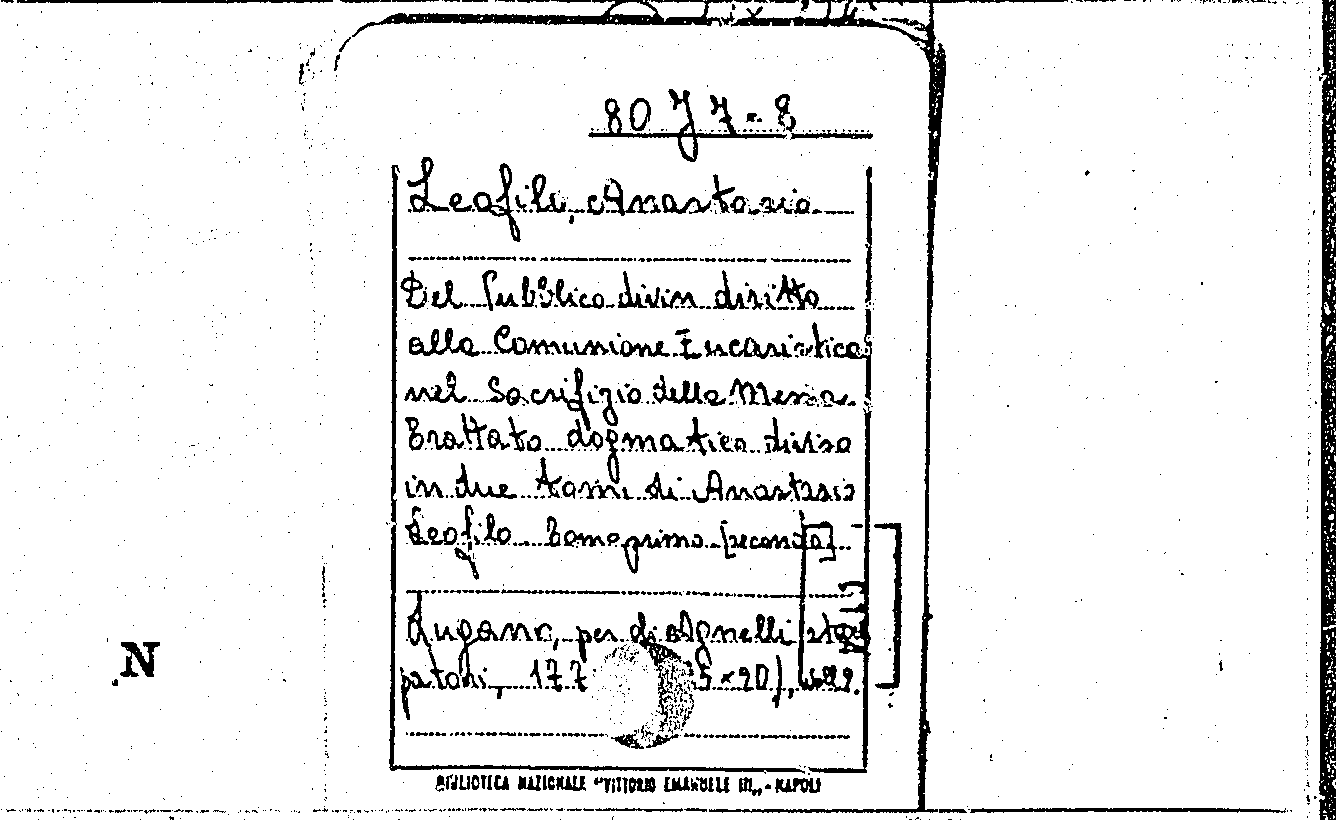 80 J 7-8
Leofili, Anastasio
Del Pubblico divin diritto
alla Comunione Eucaristica
nel Sacrifizio della Messa.
Trattato dogmatico diviso
in due tomi di Anastasio
Leofilo Tomo primo [secondo]
Lugano, per di Agnelli stam
patori, 177 5×20),
N
BIBLIOTECA NAZIONALE "VITTORIO EMANUELE III„ - NAPOLI